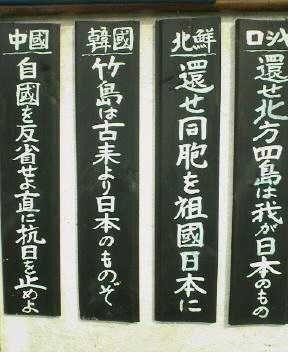 中國
自國を反省せよ直に抗日を止めよ
韓國
竹島は古来より日本のものぞ
北鮮
還せ同胞を祖國日本に
ロシヤ
還せ北方四島は我が日本のもの